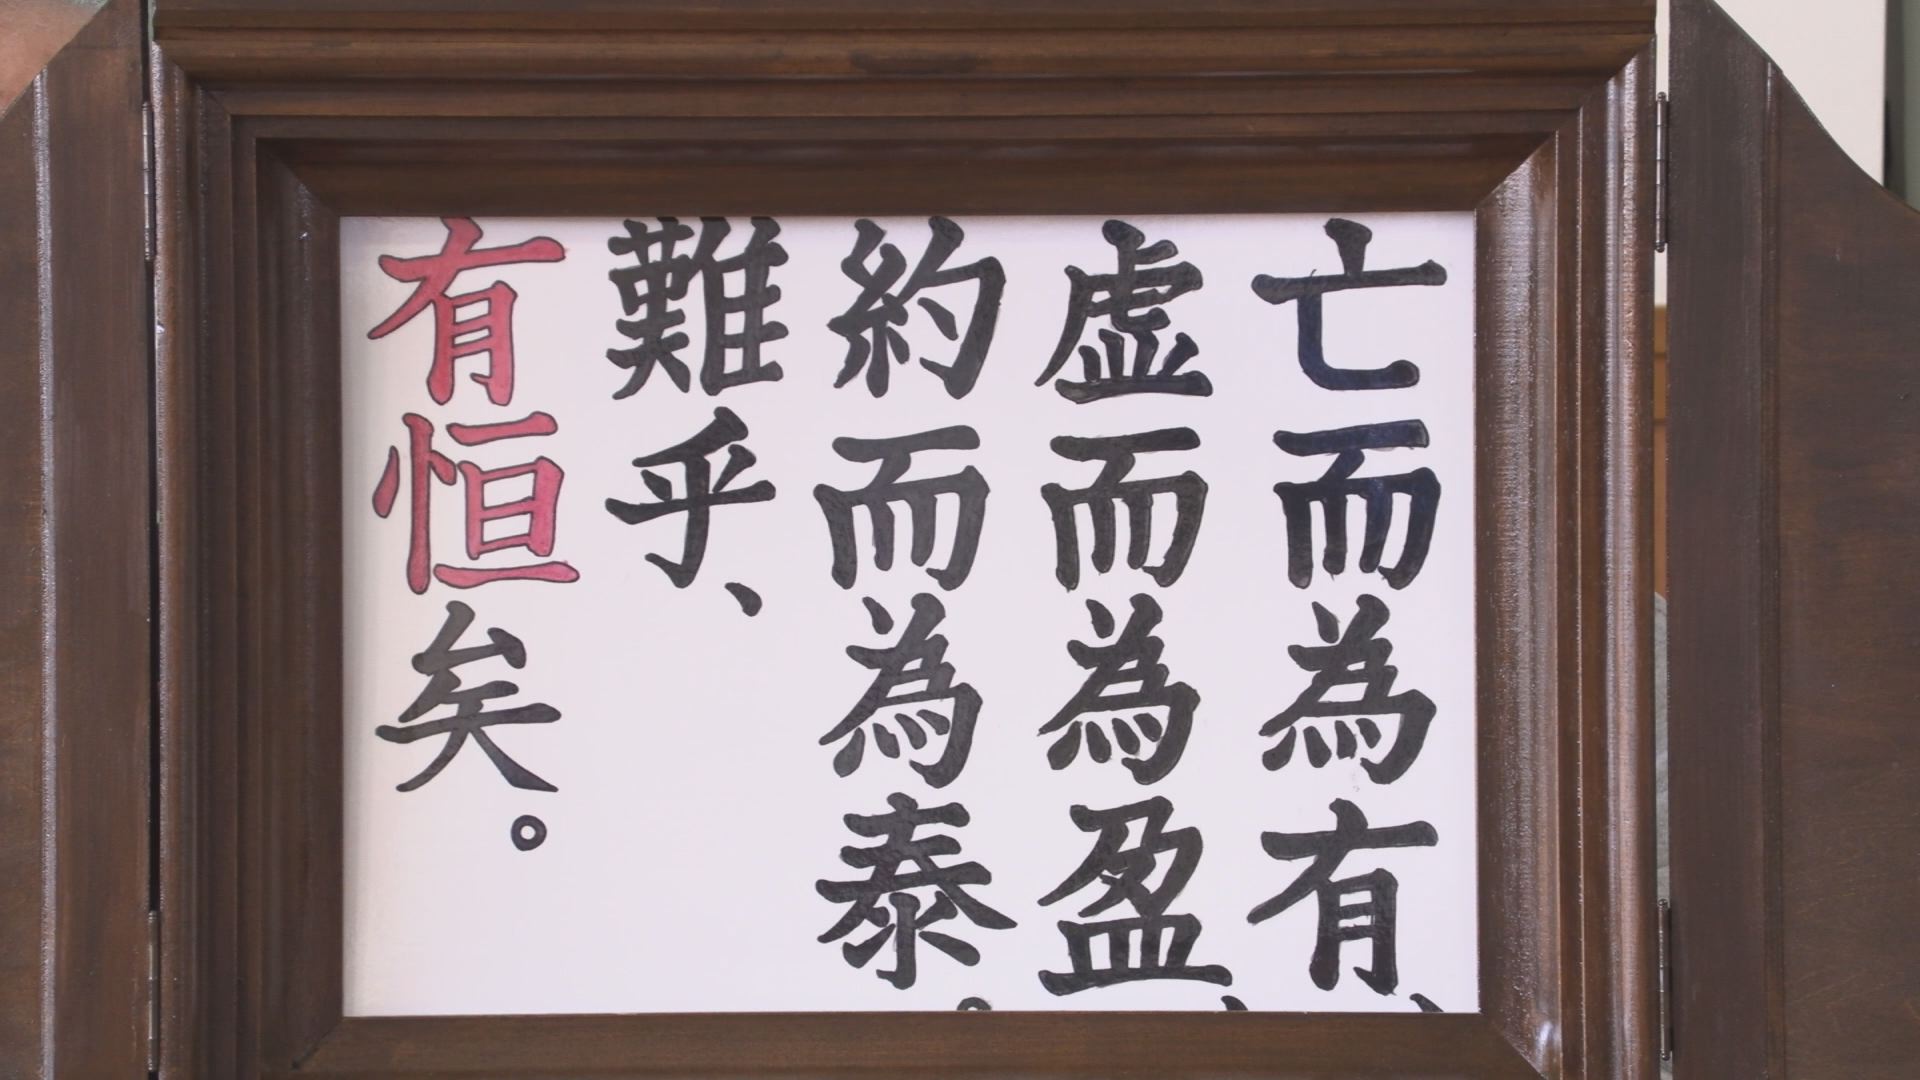 亡而為有、
虛而為盈、
約而為泰。
難乎、
有恒矣。